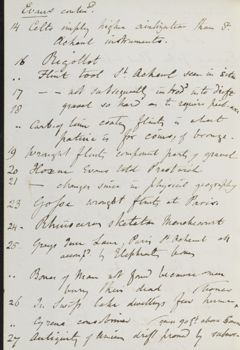 Evans contd.
14 Celts imply higher civilization than St.
Acheul instruments.
16 Rigollot
„ Flint tool St Acheul seen in situ
17 — — not subsequently introd. into drift
18 gravel so hard as to require pick-axe
„ Carb. of lime coating flints is what
patina is for coins, of bronze.
19 Wrought flints component parts of gravel
20 Evans told Prestwich
21 changes since in physical geography
23 Gosse wrought flints at Paris
24 Rhinoceros skeleton Menchecourt
25 Grays Inn Lane, Paris St Acheul all
accompd. by Elephants bones
„ Bones of Man not found because men
bury their dead
26 in Swiss lake dwellgs few human
„ Cyrena consobrina
27 Antiquity of drift proved by